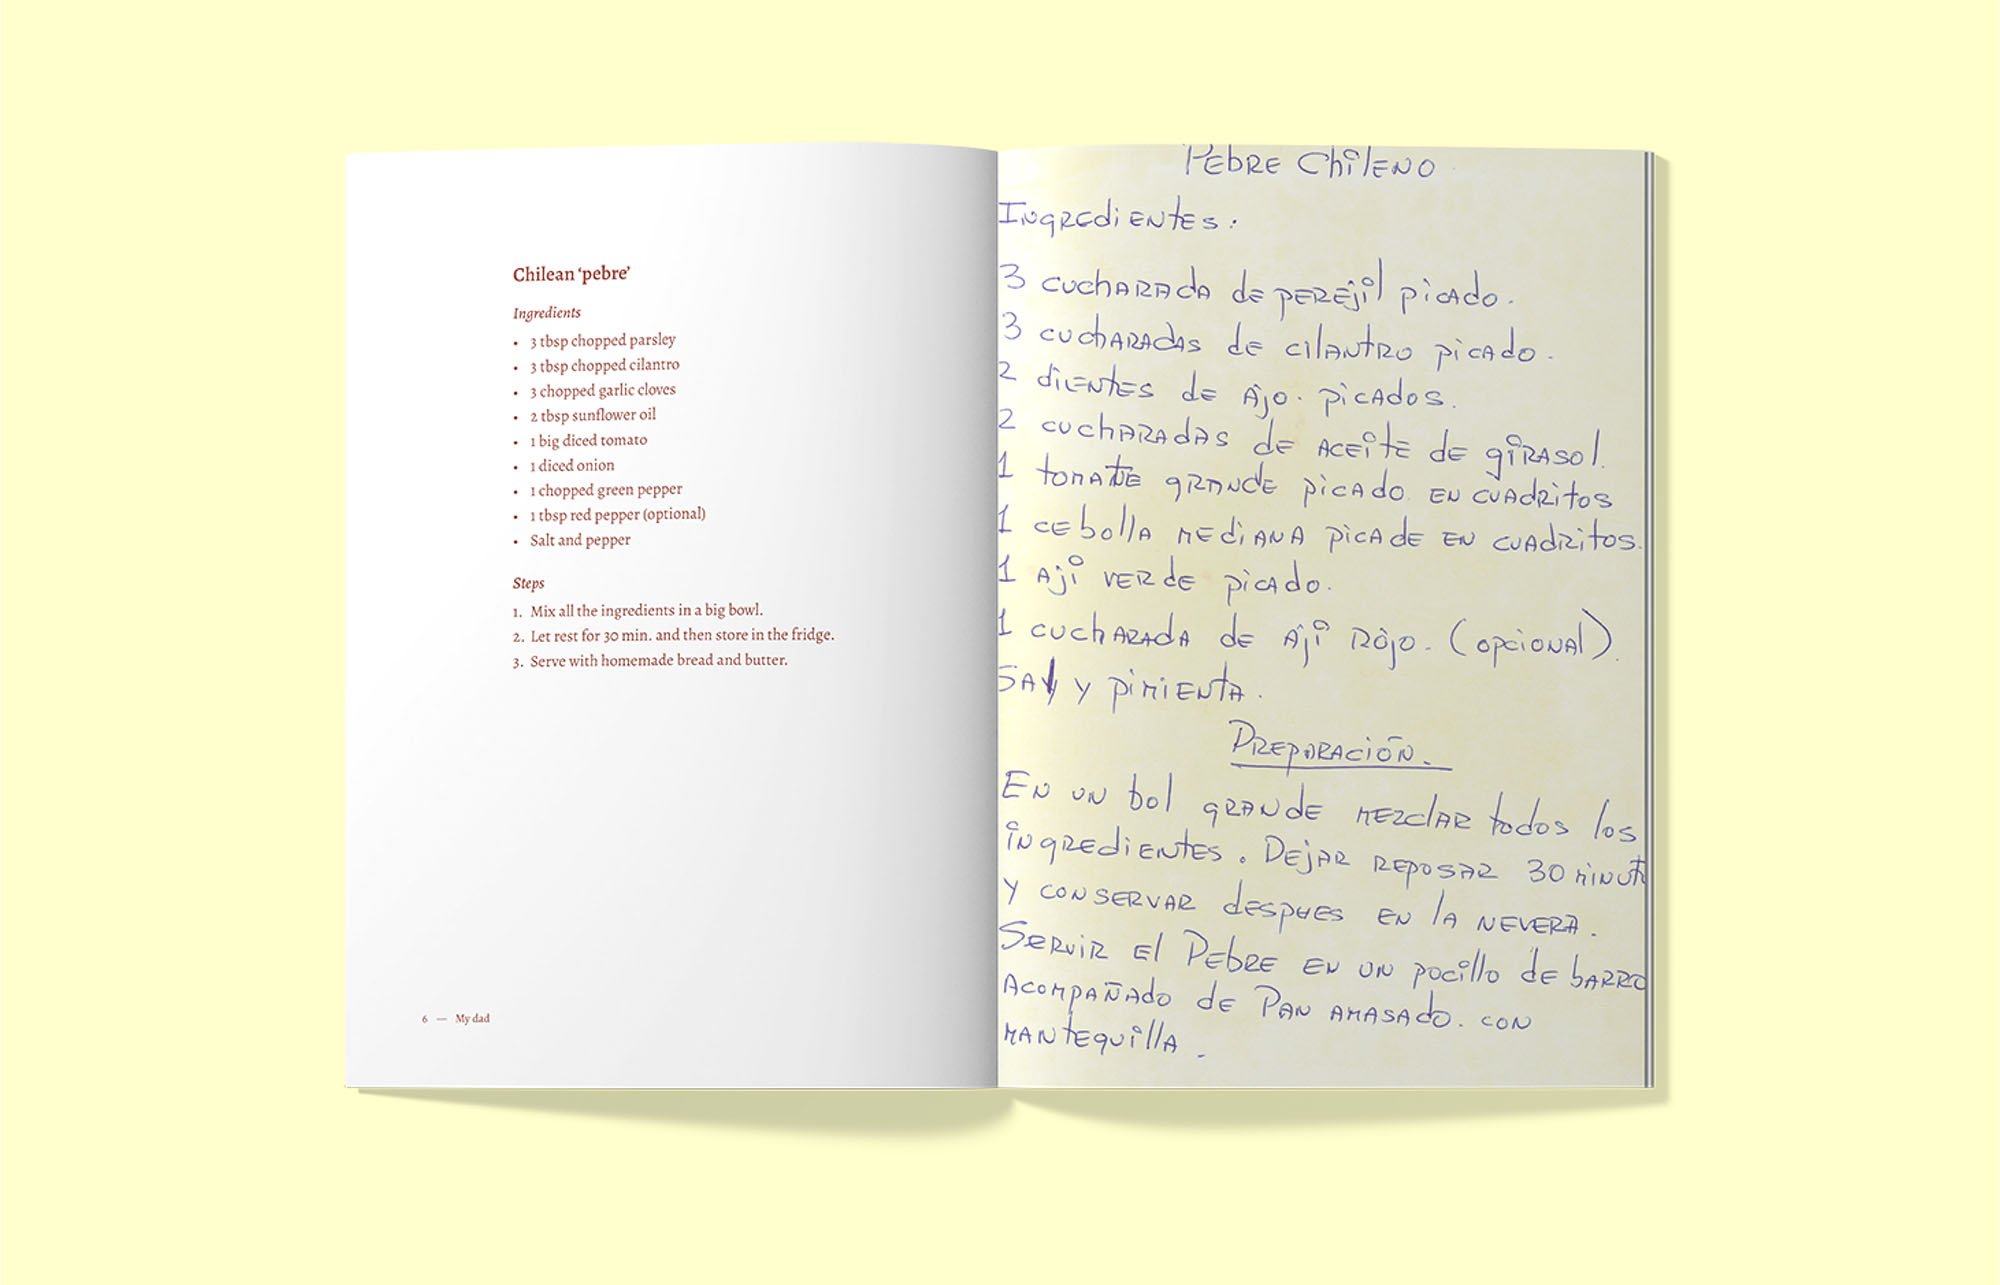 Chilean ‘pebre’
Ingredients
• 3 tbsp chopped parsley
• 3 tbsp chopped cilantro
• 3 chopped garlic cloves
• 2 tbsp sunflower oil
• 1 big diced tomato
• 1 diced onion
• 1 chopped green pepper
• 1 tbsp red pepper (optional)
• Salt and pepper
Steps
1. Mix all the ingredients in a big bowl.
2. Let rest for 30 min. and then store in the fridge.
3. Serve with homemade bread and butter.
6 — My dad
Pebre Chileno
Ingredientes:
3 cucharada de perejil picado.
3 cucharadas de cilantro picado.
2 dientes de ajo. picados.
2 cucharadas de aceite de girasol.
1 tomate grande picado en cuadritos
1 cebolla mediana picade en cuadritos.
1 ají verde picado.
1 cucharada de ají rojo. (opcional).
Sal y pimienta.
Preparación.
En un bol grande mezclar todos los
ingredientes. Dejar reposar 30 minut
y conservar despues en la nevera.
Servir el Pebre en un pocillo de barro
Acompañado de Pan amasado. con
mantequilla.